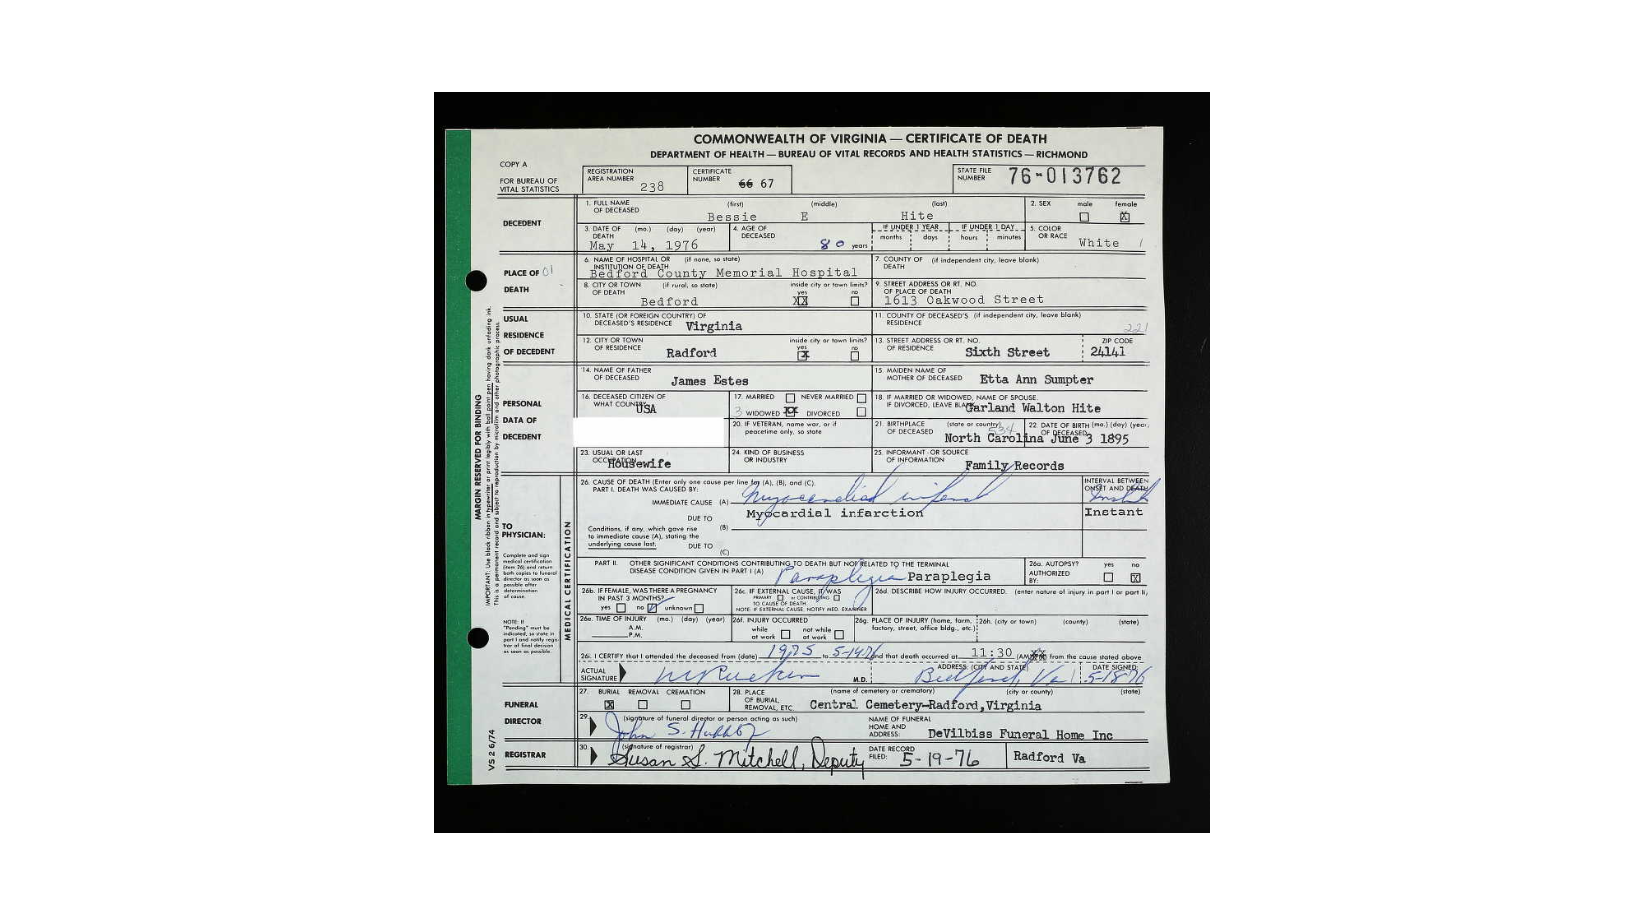 COMMONWEALTH OF VIRGINIA — CERTIFICATE OF DEATH
DEPARTMENT OF HEALTH — BUREAU OF VITAL RECORDS AND HEALTH STATISTICS — RICHMOND
COPY A
FOR BUREAU OF VITAL STATISTICS
REGISTRATION AREA NUMBER 238
CERTIFICATE NUMBER 66 67
STATE FILE NUMBER 76-013762
DECEDENT
1. FULL NAME OF DECEASED (first) (middle) (last)
Bessie E Hite
2. SEX male female X
3. DATE OF DEATH (mo.) (day) (year)
May 14, 1976
4. AGE OF DECEASED 80 years
IF UNDER 1 YEAR months days
IF UNDER 1 DAY hours minutes
5. COLOR OR RACE White
PLACE OF DEATH
6. NAME OF HOSPITAL OR INSTITUTION OF DEATH (if none, so state)
Bedford County Memorial Hospital
7. COUNTY OF DEATH (if independent city, leave blank)
8. CITY OR TOWN OF DEATH (if rural, so state)
Bedford
inside city or town limits? yes XX no
9. STREET ADDRESS OR RT. NO. OF PLACE OF DEATH
1613 Oakwood Street
USUAL RESIDENCE OF DECEDENT
10. STATE (OR FOREIGN COUNTRY) OF DECEASED'S RESIDENCE Virginia
11. COUNTY OF DECEASED'S RESIDENCE (if independent city, leave blank)
221
12. CITY OR TOWN OF RESIDENCE Radford
inside city or town limits? yes X no
13. STREET ADDRESS OR RT. NO. OF RESIDENCE Sixth Street
ZIP CODE 24141
PERSONAL DATA OF DECEDENT
14. NAME OF FATHER OF DECEASED James Estes
15. MAIDEN NAME OF MOTHER OF DECEASED Etta Ann Sumpter
16. DECEASED CITIZEN OF WHAT COUNTRY USA
17. MARRIED NEVER MARRIED
WIDOWED XX DIVORCED
18. IF MARRIED OR WIDOWED, NAME OF SPOUSE. IF DIVORCED, LEAVE BLANK
Garland Walton Hite
20. IF VETERAN, name war, or if peacetime only, so state
21. BIRTHPLACE OF DECEASED (state or country)
North Carolina
22. DATE OF BIRTH OF DECEASED (mo.) (day) (year)
June 3 1895
23. USUAL OR LAST OCCUPATION Housewife
24. KIND OF BUSINESS OR INDUSTRY
25. INFORMANT - OR SOURCE OF INFORMATION Family Records
MARGIN RESERVED FOR BINDING
IMPORTANT: Use black ribbon in typewriter or print legibly with ball point pen having dark unfading ink.
This is a permanent record and subject to reproduction by microfilm and other photographic process.
VS 2 6/74
TO PHYSICIAN:
Complete and sign medical certification (item 26) and return both copies to funeral director as soon as possible after determination of cause.
NOTE: If "Pending" must be indicated, so state in part I and notify registrar of final decision as soon as possible.
MEDICAL CERTIFICATION
26. CAUSE OF DEATH (Enter only one cause per line for (A), (B), and (C).
PART I. DEATH WAS CAUSED BY:
INTERVAL BETWEEN ONSET AND DEATH
IMMEDIATE CAUSE (A) Myocardial infarct
Myocardial infarction
Instant
DUE TO
Conditions, if any, which gave rise to immediate cause (A), stating the underlying cause last.
(B)
DUE TO
(C)
PART II. OTHER SIGNIFICANT CONDITIONS CONTRIBUTING TO DEATH BUT NOT RELATED TO THE TERMINAL DISEASE CONDITION GIVEN IN PART I (A)
Paraplegia Paraplegia
26a. AUTOPSY? yes no X
AUTHORIZED BY:
26b. IF FEMALE, WAS THERE A PREGNANCY IN PAST 3 MONTHS?
yes no unknown
26c. IF EXTERNAL CAUSE, IT WAS
PRIMARY or CONTRIBUTING TO CAUSE OF DEATH
NOTE: IF EXTERNAL CAUSE, NOTIFY MED. EXAMINER
26d. DESCRIBE HOW INJURY OCCURRED. (enter nature of injury in part I or part II)
26e. TIME OF INJURY (mo.) (day) (year)
A.M.
P.M.
26f. INJURY OCCURRED
while at work not while at work
26g. PLACE OF INJURY (home, farm, factory, street, office bldg., etc.)
26h. (city or town) (county) (state)
26i. I CERTIFY that I attended the deceased from (date) 1975 to 5-14-76 and that death occurred at 11:30 (AM) from the cause stated above
ACTUAL SIGNATURE
M.D.
ADDRESS: (CITY AND STATE)
Bedford, Va
DATE SIGNED:
5-18-76
FUNERAL DIRECTOR
27. BURIAL REMOVAL CREMATION
X
28. PLACE OF BURIAL, REMOVAL, ETC. (name of cemetery or crematory) (city or county) (state)
Central Cemetery-Radford,Virginia
29. (signature of funeral director or person acting as such)
John S.
NAME OF FUNERAL HOME AND ADDRESS: DeVilbiss Funeral Home Inc
REGISTRAR
30. (signature of registrar)
Susan S. Mitchell, Deputy
DATE RECORD FILED: 5-19-76
Radford Va